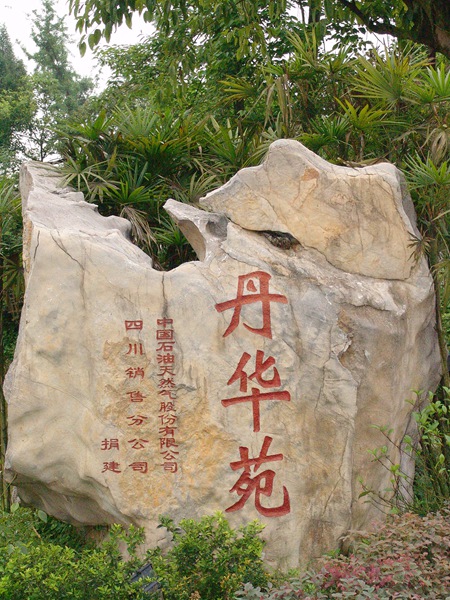 丹华苑
中国石油天然气股份有限公司
四川销售分公司
捐建